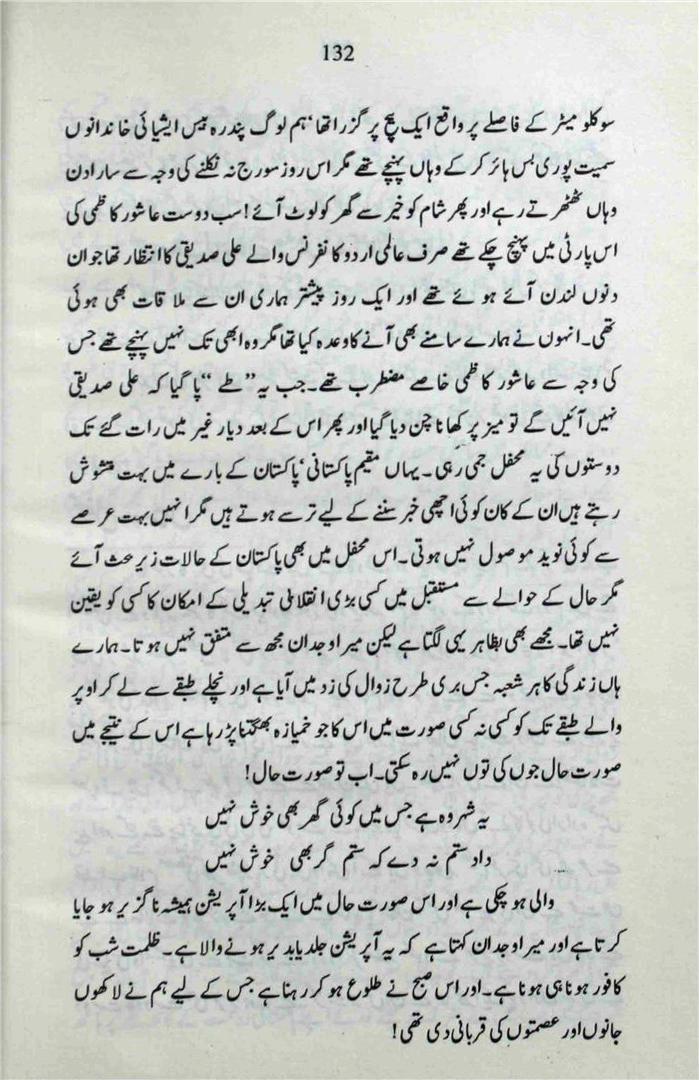 132
سو کلو میٹر کے فاصلے پر واقع ایک بیچ پر گزرا تھا، ہم لوگ پندرہ بیس ایشیائی خاندانوں
سمیت پوری بس ہائر کر کے وہاں پہنچے تھے مگر اس روز سورج نہ نکلنے کی وجہ سے سارا دن
وہاں ٹھٹھرتے رہے اور پھر شام کو خیر سے گھر کو لوٹ آئے! سب دوست عاشور کاظمی کی
اس پارٹی میں پہنچ چکے تھے صرف عالمی اردو کانفرنس والے علی صدیقی کا انتظار تھا جو ان
دنوں لندن آئے ہوئے تھے اور ایک روز پیشتر ہماری ان سے ملاقات بھی ہوئی
تھی۔ انہوں نے ہمارے سامنے بھی آنے کا وعدہ کیا تھا مگر وہ ابھی تک نہیں پہنچے تھے جس
کی وجہ سے عاشور کاظمی خاصے مضطرب تھے۔ جب یہ "طے" پا گیا کہ علی صدیقی
نہیں آئیں گے تو میز پر کھانا چن دیا گیا اور پھر اس کے بعد دیار غیر میں رات گئے تک
دوستوں کی یہ محفل جمی رہی۔ یہاں مقیم پاکستانی، پاکستان کے بارے میں بہت مشوش
رہتے ہیں ان کے کان کوئی اچھی خبر سننے کے لیے ترسے ہوتے ہیں مگر انہیں بہت عرصے
سے کوئی نوید موصول نہیں ہوتی۔ اس محفل میں بھی پاکستان کے حالات زیر بحث آئے
مگر حال کے حوالے سے مستقبل میں کسی بڑی انقلابی تبدیلی کے امکان کا کسی کو یقین
نہیں تھا۔ مجھے بھی بظاہر یہی لگتا ہے لیکن میرا وجدان مجھ سے متفق نہیں ہوتا۔ ہمارے
ہاں زندگی کا ہر شعبہ جس بری طرح زوال کی زد میں آیا ہے اور نچلے طبقے سے لے کر اوپر
والے طبقے تک کو کسی نہ کسی صورت میں اس کا جو خمیازہ بھگتنا پڑ رہا ہے اس کے نتیجے میں
صورت حال جوں کی توں نہیں رہ سکتی۔ اب تو صورت حال!
یہ شہر وہ ہے جس میں کوئی گھر بھی خوش نہیں
داد ستم نہ دے کہ ستم گر بھی خوش نہیں
والی ہو چکی ہے اور اس صورت حال میں ایک بڑا آپریشن ہمیشہ ناگزیر ہو جایا
کرتا ہے اور میرا وجدان کہتا ہے کہ یہ آپریشن جلد یا بدیر ہونے والا ہے۔ ظلمت شب کو
کافور ہونا ہی ہونا ہے۔ اور اس صبح نے طلوع ہو کر رہنا ہے جس کے لیے ہم نے لاکھوں
جانوں اور عصمتوں کی قربانی دی تھی!